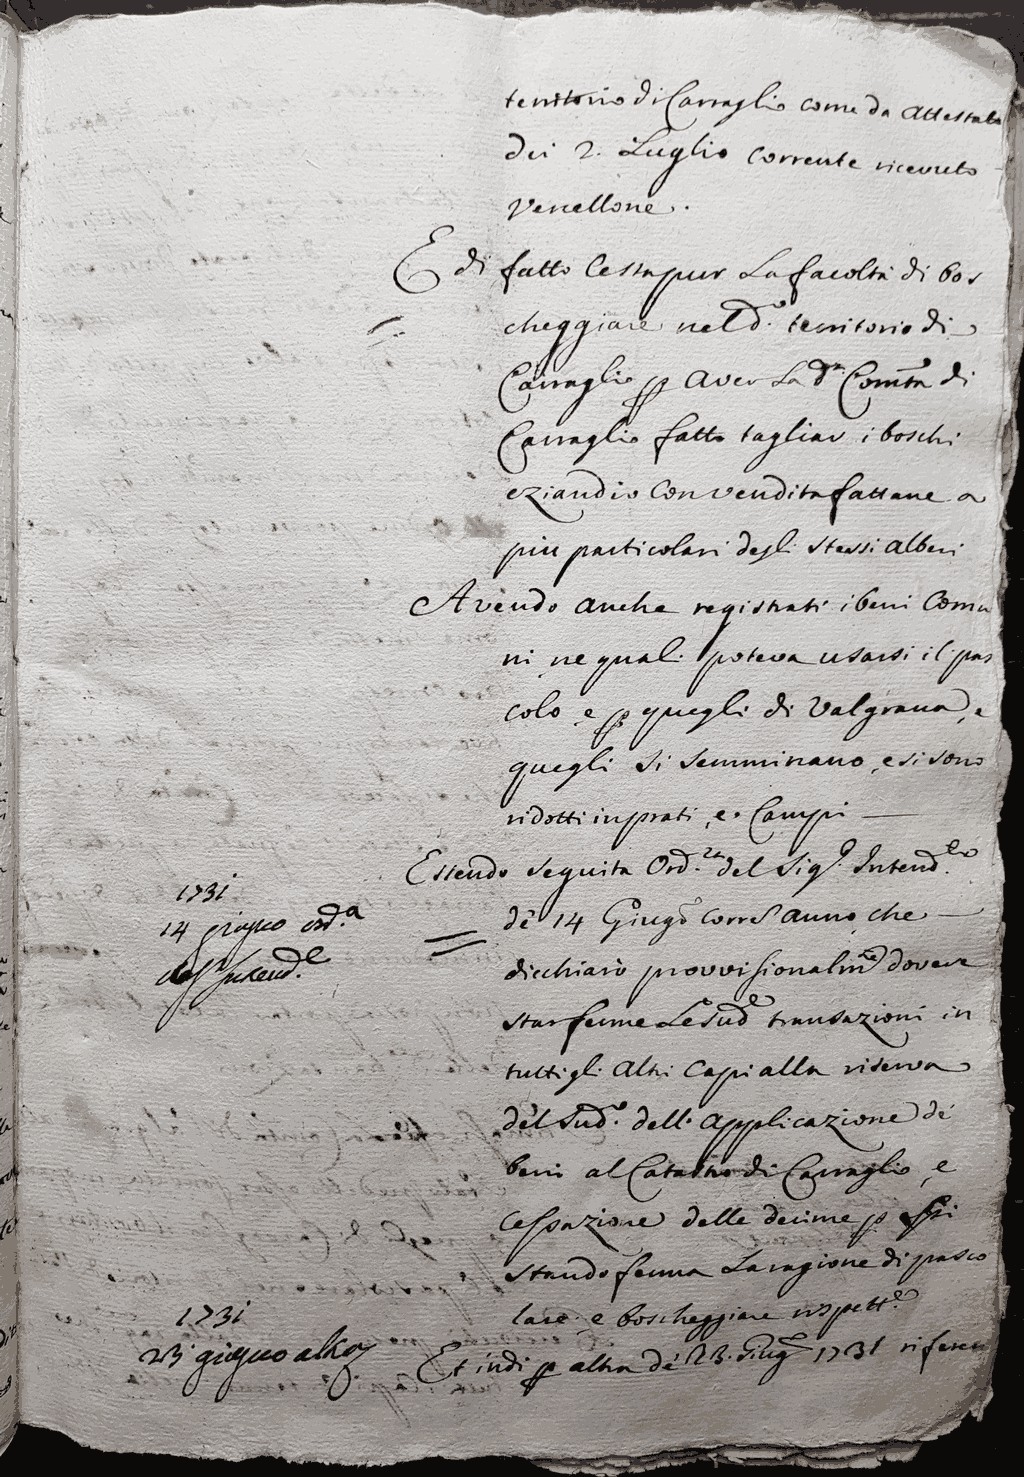 territorio di Carraglio come da Attestato
dei 2. Luglio corrente riceuuto
Venellone.
E di fatto Cessa pur La facoltà di bos
cheggiare nel d.º territorio di
Carraglio p Aver La d.ª Com.tà di
Carraglio fatto tagliar i boschi
eziandio Con vendita fattane a
più particolari degli stessi alberi
Avendo anche registrati i beni Comu
ni ne quali poteva usarsi il pas
colo e p quegli di Valgrana, e
quegli si semminano, e si sono
ridotti in prati, e Campi —
Essendo seguita Ord.za del Sig.r Intend.te
de 14 Giug.o corre anno che —
dicchiarò provvisionalm.te dovere
star ferme Le Sud.e transazioni in
tutti gli Altri Capi alla riserva
del Sud.º dell'Applicazione de
beni al Catastro di Carraglio, e
Cessazione delle decime p essi
Stando ferma La ragione di pasco
lare e boscheggiare rispett.e
Et indi p altra de 23. Giug.º 1731 riferen
1731
14 giugno ord.ª
del S.r Intend.e
1731
23 giugno altra